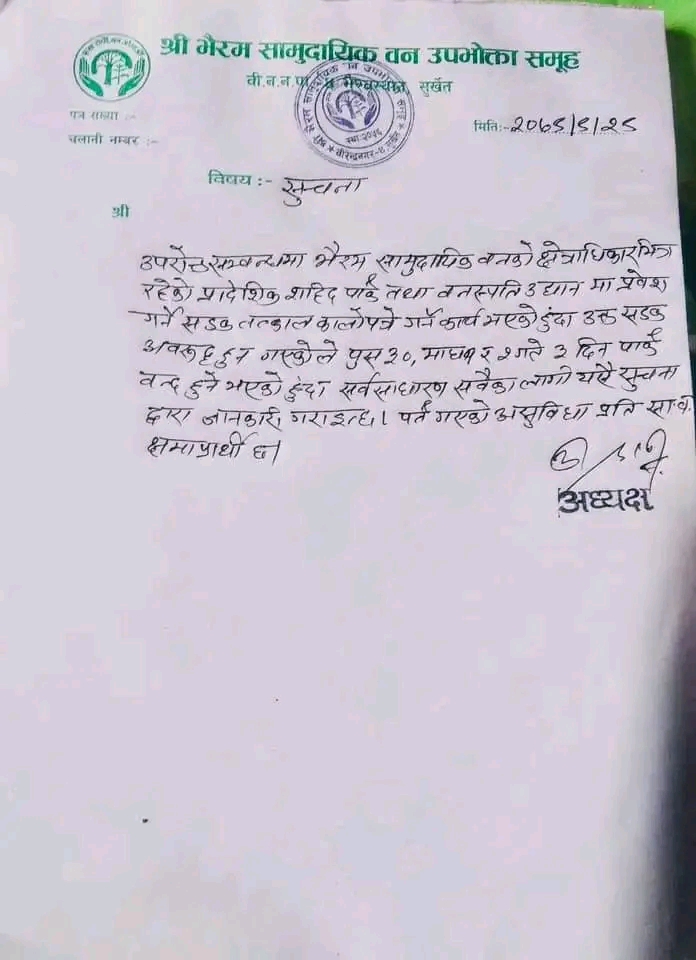 श्री भैरम सामुदायिक वन उपभोक्ता समूह
वी.न.पा. सुर्खेत
पत्र संख्या :-
चलानी नम्बर :-
मिति:-
विषय :- सुचना
श्री
उपरोक्त सम्बन्धमा भैरम सामुदायिक वनको क्षेत्राधिकारभित्र
रहेको प्रादेशिक शहिद पार्क तथा वनस्पति उद्यान मा प्रवेश
गर्ने सडक तत्काल कालोपत्रे गर्ने कार्य भएको हुंदा उक्त सडक
अवरुद्ध हुन गएकोले पुस ३०, माघ १ र २ गते ३ दिन पार्क
वन्द हुने भएको हुंदा सर्वसाधारण सवैका लागी यसै सुचना
द्वारा जानकारी गराइन्छ। पर्न गएको असुविधा प्रति सा.व.
क्षमाप्रार्थी छ।
अध्यक्ष